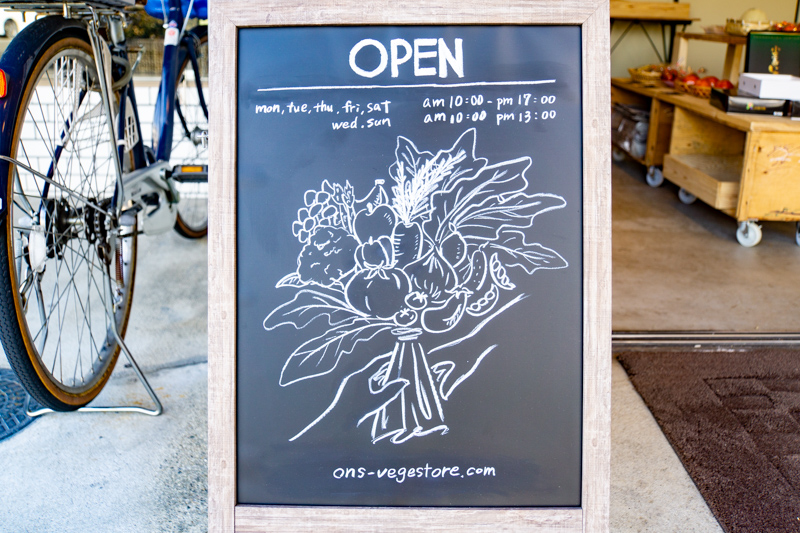 OPEN
mon, tue, thu, fri, sat am 10:00 - pm 17:00
wed. sun am 10:00 pm 13:00
ons-vegestore.com